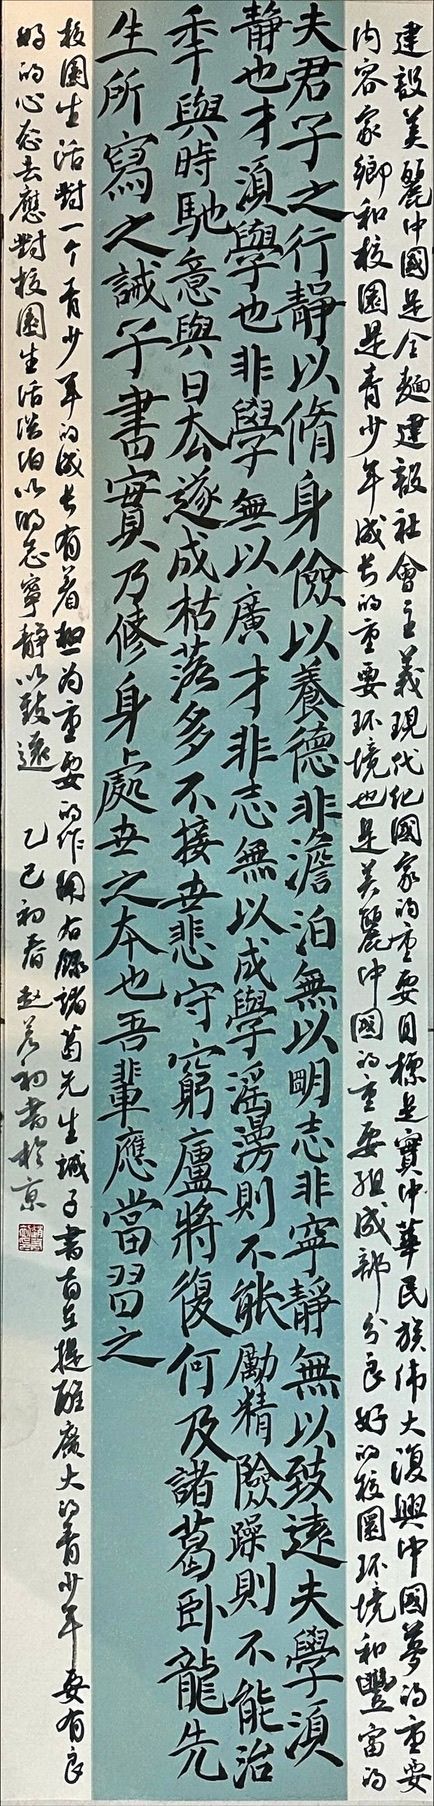 建設美麗中國是全麵建設社會主義現代化國家的重要目標是實中華民族伟大復興中國夢的重要
内容家鄉和校園是青少年成长的重要环境也是美麗中國的重要组成部分良好的校園环境和豐富的
夫君子之行靜以脩身儉以養德非澹泊無以明志非寧靜無以致遠夫學須
靜也才須學也非學無以廣才非志無以成學滛慢則不能勵精險躁則不能治
年與時馳意與日去遂成枯落多不接世悲守窮廬將復何及諸葛卧龍先
生所寫之誡子書實乃修身處世之本也吾輩應當習之
校園生活對一个青少年的成长有着极为重要的作用右錄諸葛先生誡子書旨在提醒廣大的青少年要有良
好的心态去應對校園生活淡泊以明志寧靜以致遠 乙巳初春 赵 初書於京